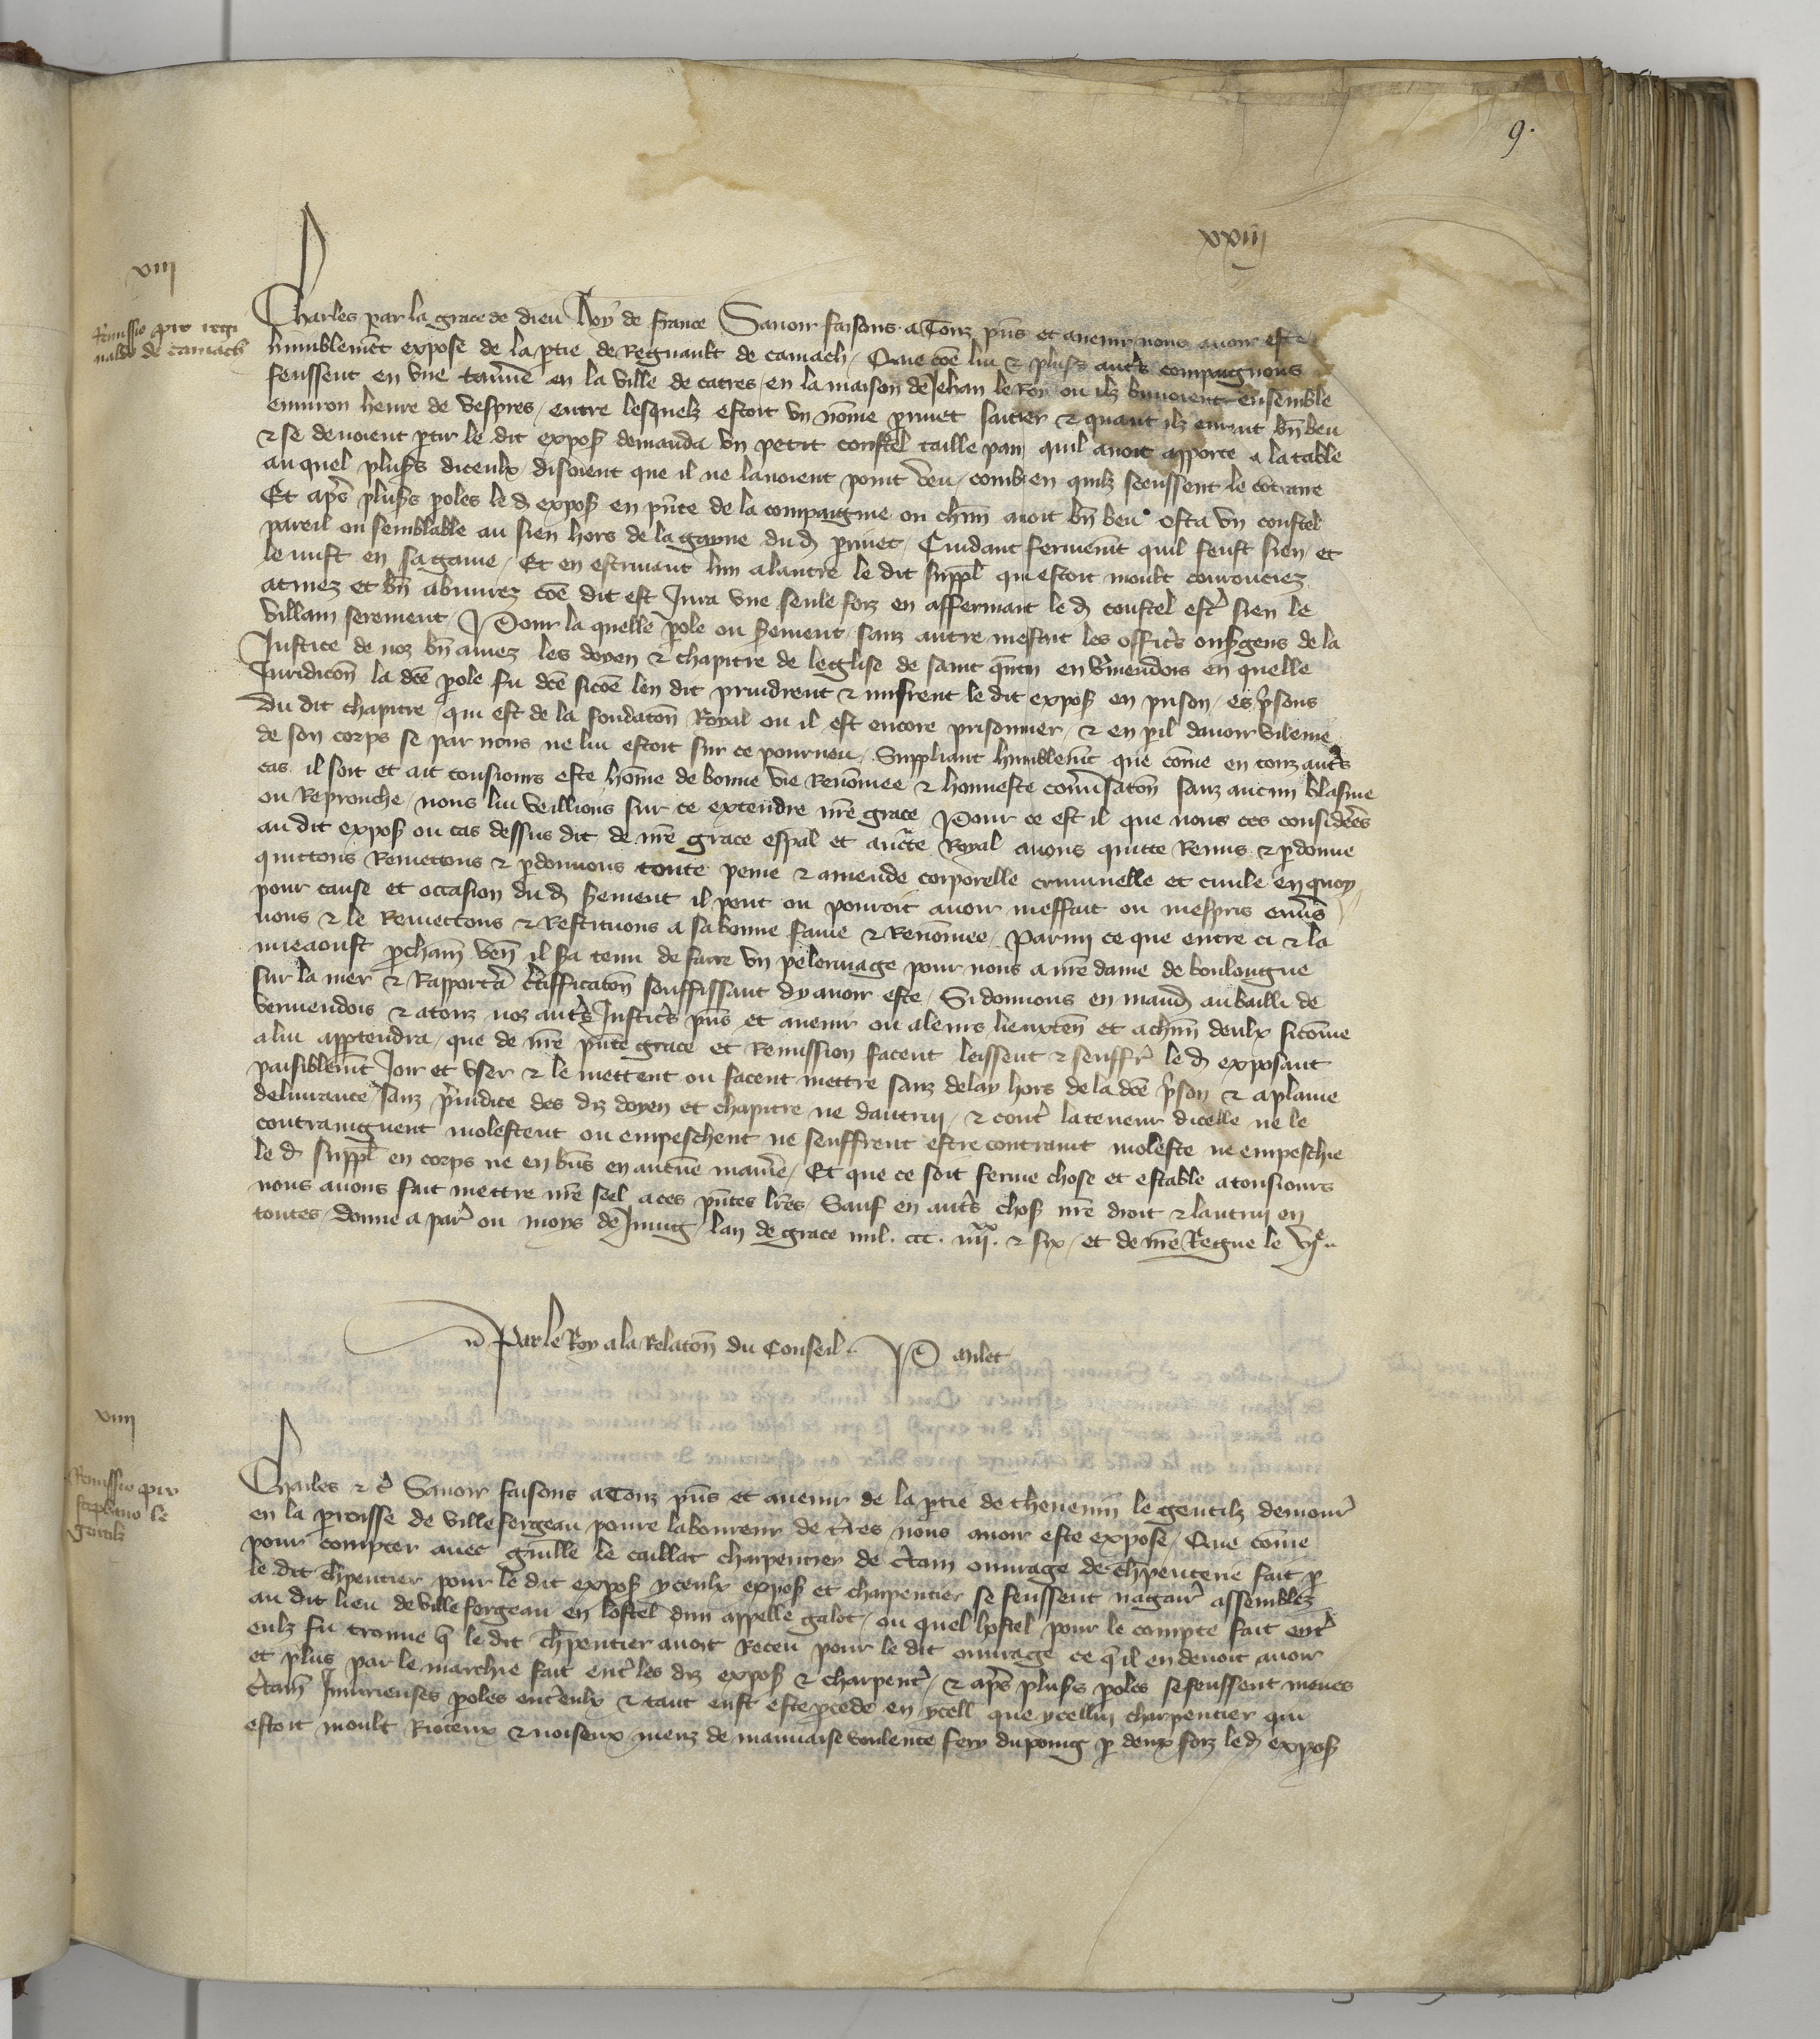 9.
xxiij
viij
Remissio pro regi
naldo de camach
Charles par la grace de dieu Roy de france Sauoir faisons a Touz pñs et auenir nous auoir este
humblemt expose de la ptie de Regnault de camach / Que cõe lui & plusrs autrs compaignons
feussent en vne tauñe en la ville de catres / en la maison de Jehan le Roy ou ilz buuoient ensemble
enuiron heure de vespres / entre lesquelz estoit vn nõme priuet saitier & quant ilz eurent bñ beu
& se deuoient ptir le dit expos demanda vn petit coustel taille pain quil auoit apporte a la table
au quel plusrs diceulx disoient que il ne lauoient point veu / combien quilz sceussent le cõtraire
Et aprs plusrs poles le d expos en pñce de la compaignie ou chũn auoit bñ beu osta vn coustel
pareil ou semblable au sien hors de la gayne du d priuet / Cuidant fermemt quil feust sien et
le mist en sa gaine / Et en estriuant lun a lautre le dit suppl qui estoit moult courouciez
atinez et bñ abuurez cõe dit est Jura vne seule foiz en affermant le d coustel estr sien le
villain serement / Pour la quelle pole ou serment / sanz autre mesfait les officrs ou sergens de la
Justice de noz bñ amez les doyen & chapitre de leglise de saint quẽtin en vmendois en quelle
Juridicõn la dcẽ pole fu dcẽ sicõe len dit prindrent & mistrent le dit expos en prison / es prisons
du dit chapitre / qui est de la fondatõn Royal ou il est encore prisonnier / & en pil dauoir vilenie
de son corps se par nous ne lui estoit sur ce pourueu / Suppliant humblemt que cõme en touz autrs
cas il soit et ait tousiours este hõme de bonne vie Renõmee & honneste conuersatõn sanz aucun blasme
ou Reprouche / nous lui veillions sur ce extendre nrẽ grace Pour ce est il que nous ces considerees
au dit expos ou cas dessus dit de nrẽ grace espal et aucte Royal auons quitte Remis & pdonne
quittons Remettons & pdonnons toute peine & amende corporelle criminelle et ciuile en quoy
pour cause et occasion du d serment il peut ou pourroit auoir meffait ou mespris enuers
nous & le Remettons & Restituons a sa bonne fame & Renõmee / Parmi ce que entre ci & la
mieaoust pchain ven il sera tenu de faire vn pelerinage pour nous a nrẽ dame de boulongne
sur la mer & Rapportera certifficatõn souffissant dy auoir este / Si donnons en mand au bailli de
vermendois & a touz noz autrs Justicrs pñs et auenir ou a leurs lieuxten et a chũn deulx sicõme
a lui apptendra / que de nrẽ pñte grace et Remission facent leissent & seuffr le d exposant
paisiblemt Joir et vser & le mettent ou facent mettre sanz delay hors de la dcẽ prison & a plaine
deliurance / sanz preiudice des diz doyen et chapitre ne dautrui / & contr la teneur dicelle ne le
contraingnent molestent ou empeschent ne seuffrent estre contraint moleste ne empeschie
le d suppl en corps ne en bñs en aucune manie / Et que ce soit ferme chose et estable a tousiours
nous auons fait mettre nrẽ seel a ces pñtes lres / Sauf en autrs chos nrẽ droit & lautrui en
toutes / donne a par ou moys de Juing / lan de grace mil. ccc. iiijxx. & six / et de nrẽ Regne le vje
Par le Roy a la Relatõn du Conseil. P. milet
viiij
Remissio pro
stephano le
gentilz
Charles & c Sauoir faisons a Touz pñs et auenir de la ptie de theuenin le gentilz demour
en la proisse de ville fergeau poure laboureur de terres nous auoir este expose / Que cõme
pour compter auec guille le caillat charpentier de ctain ouurage de chpenterie fait p
le dit chpentier pour le dit expos yceulx expos et charpentier se feussent nagair assemblez
au dit lieu de ville fergeau en lostel dun appelle galot / ou quel hostel pour le compte fait entr
eulx fu trouue q le dit chpentier auoit Receu pour le dit ouurage ce q il en deuoit auoir
et plus par le marchie fait entr les diz expos & charpentr / & aprs plusrs poles se feussent meues
ctain Iniurieuses poles entreulx & tant eust este pcede en ycell que ycellui charpentier qui
estoit moult Rioteux & noiseux meuz de mauuaise voulente fery du poing p deux foiz le d expos